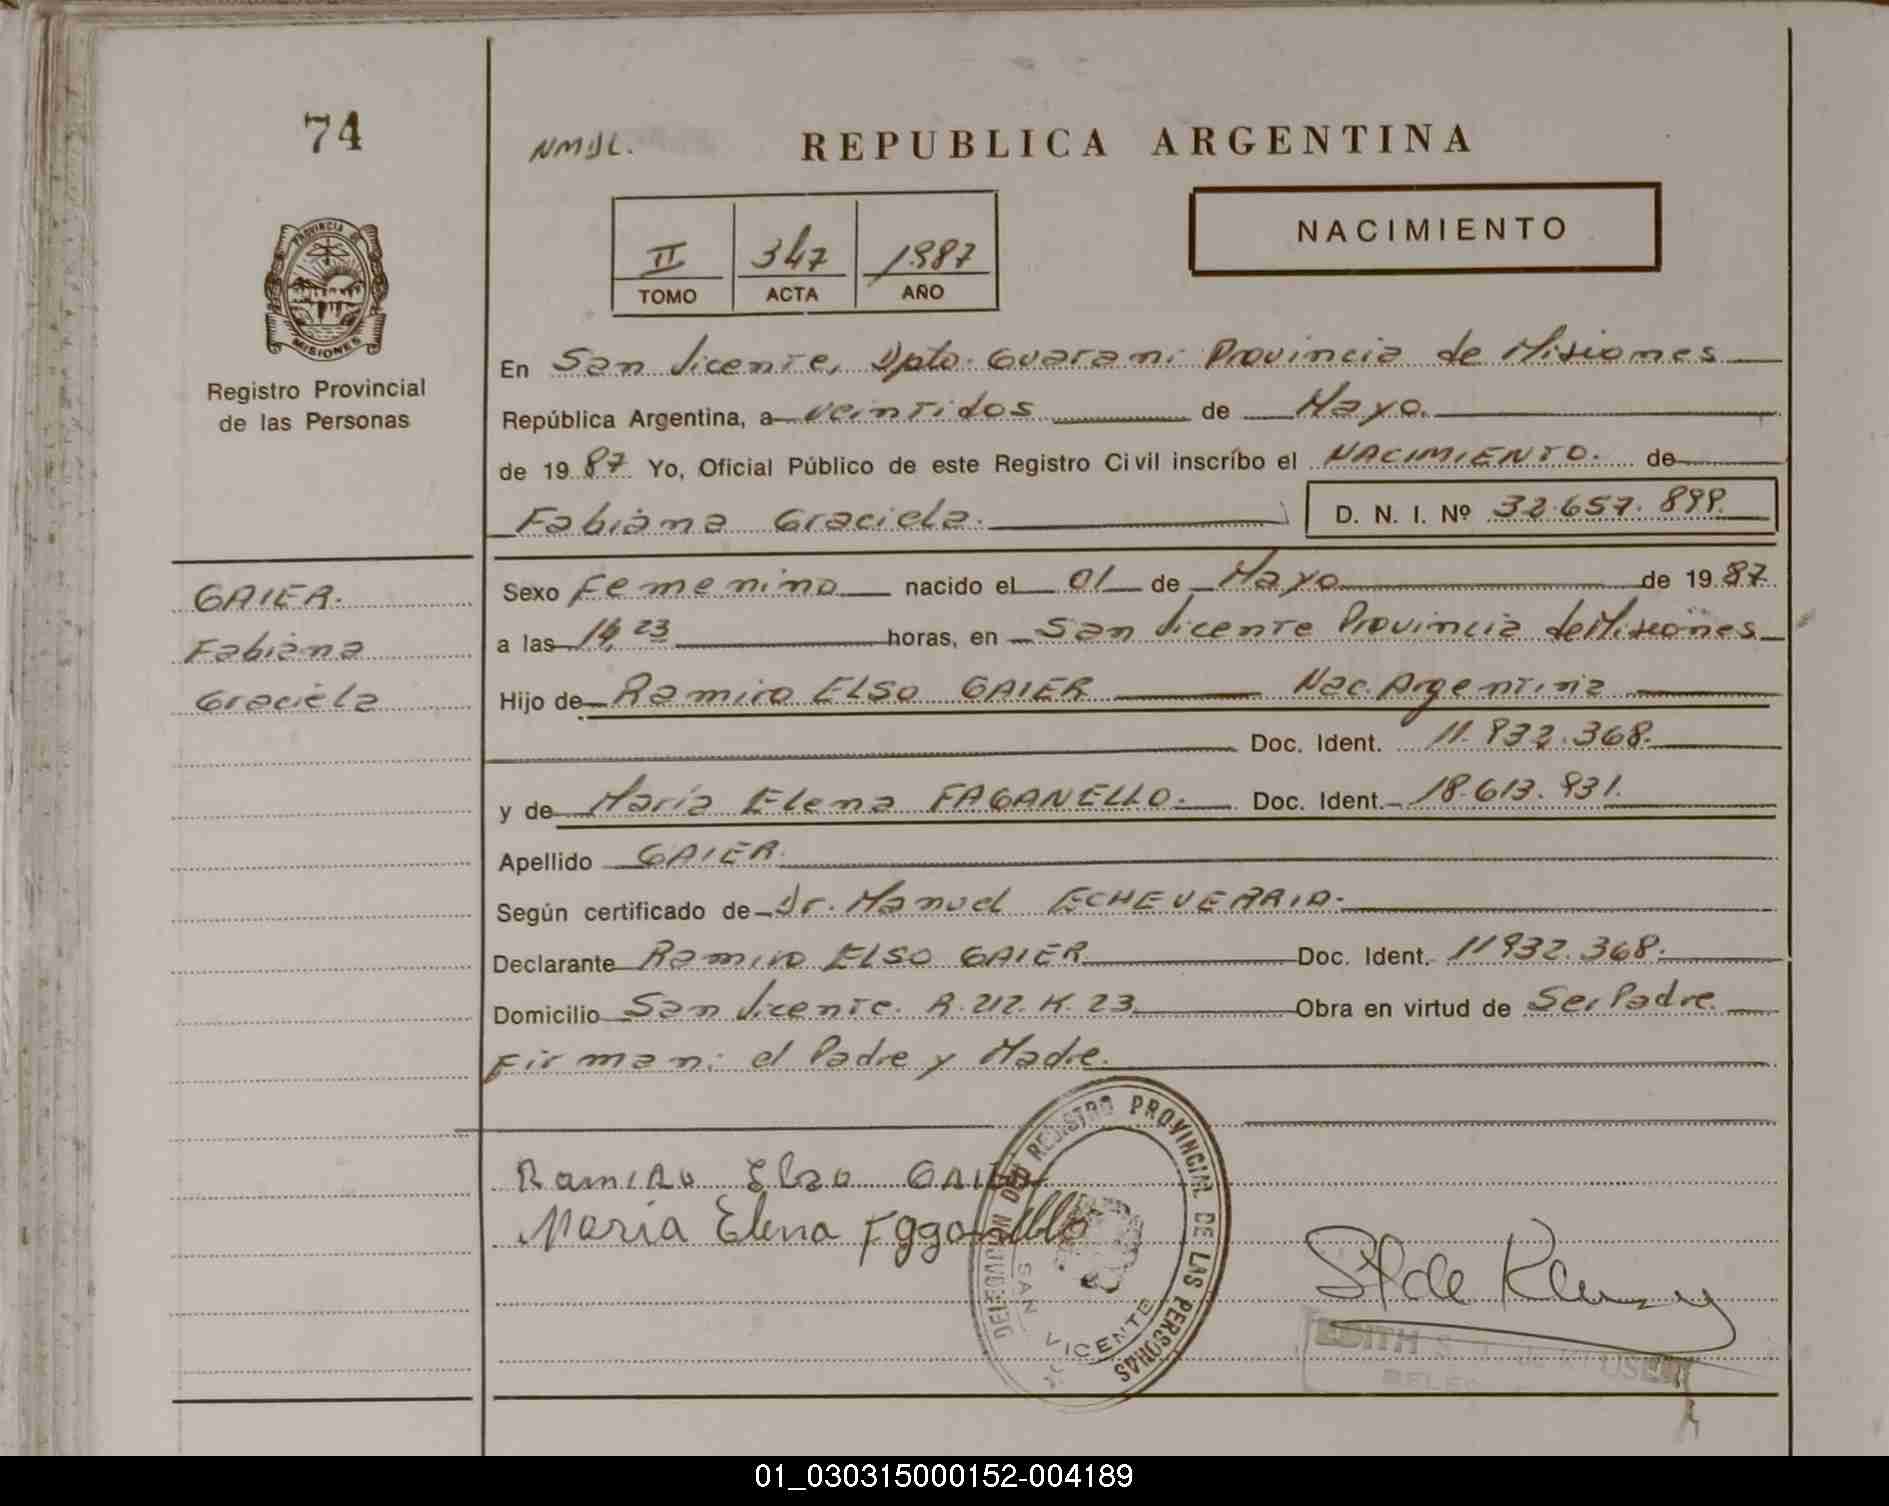 74
NMDL.
REPUBLICA ARGENTINA
NACIMIENTO
II 347 1987
TOMO ACTA AÑO
PROVINCIA DE MISIONES
Registro Provincial
de las Personas
En San Vicente, Dpto. Guarani Provincia de Misiones
República Argentina, a veintidos de Mayo.
de 1987. Yo, Oficial Público de este Registro Civil inscribo el NACIMIENTO. de
Fabiana Graciela. D. N. I. Nº 32.657.899.
GAIER.
Fabiana
Graciela
Sexo Femenino nacido el 01 de Mayo de 1987.
a las 14,23 horas, en San Vicente Provincia de Misiones
Hijo de Ramiro ELSO GAIER Nac. Argentina
Doc. Ident. 11.932.368.
y de María Elena FAGANELLO. Doc. Ident. 18.613.931.
Apellido GAIER.
Según certificado de Dr. Manuel ECHEVERRIA.
Declarante Ramiro ELSO GAIER Doc. Ident. 11932.368.
Domicilio San Vicente. R. 212. K. 23 Obra en virtud de Ser Padre.
Firman: el Padre y Madre.
Ramiro Elso GAIER
Maria Elena Fgganello
DELEGACION DEL REGISTRO PROVINCIAL DE LAS PERSONAS
SAN VICENTE
EDITH S.
01_030315000152-004189